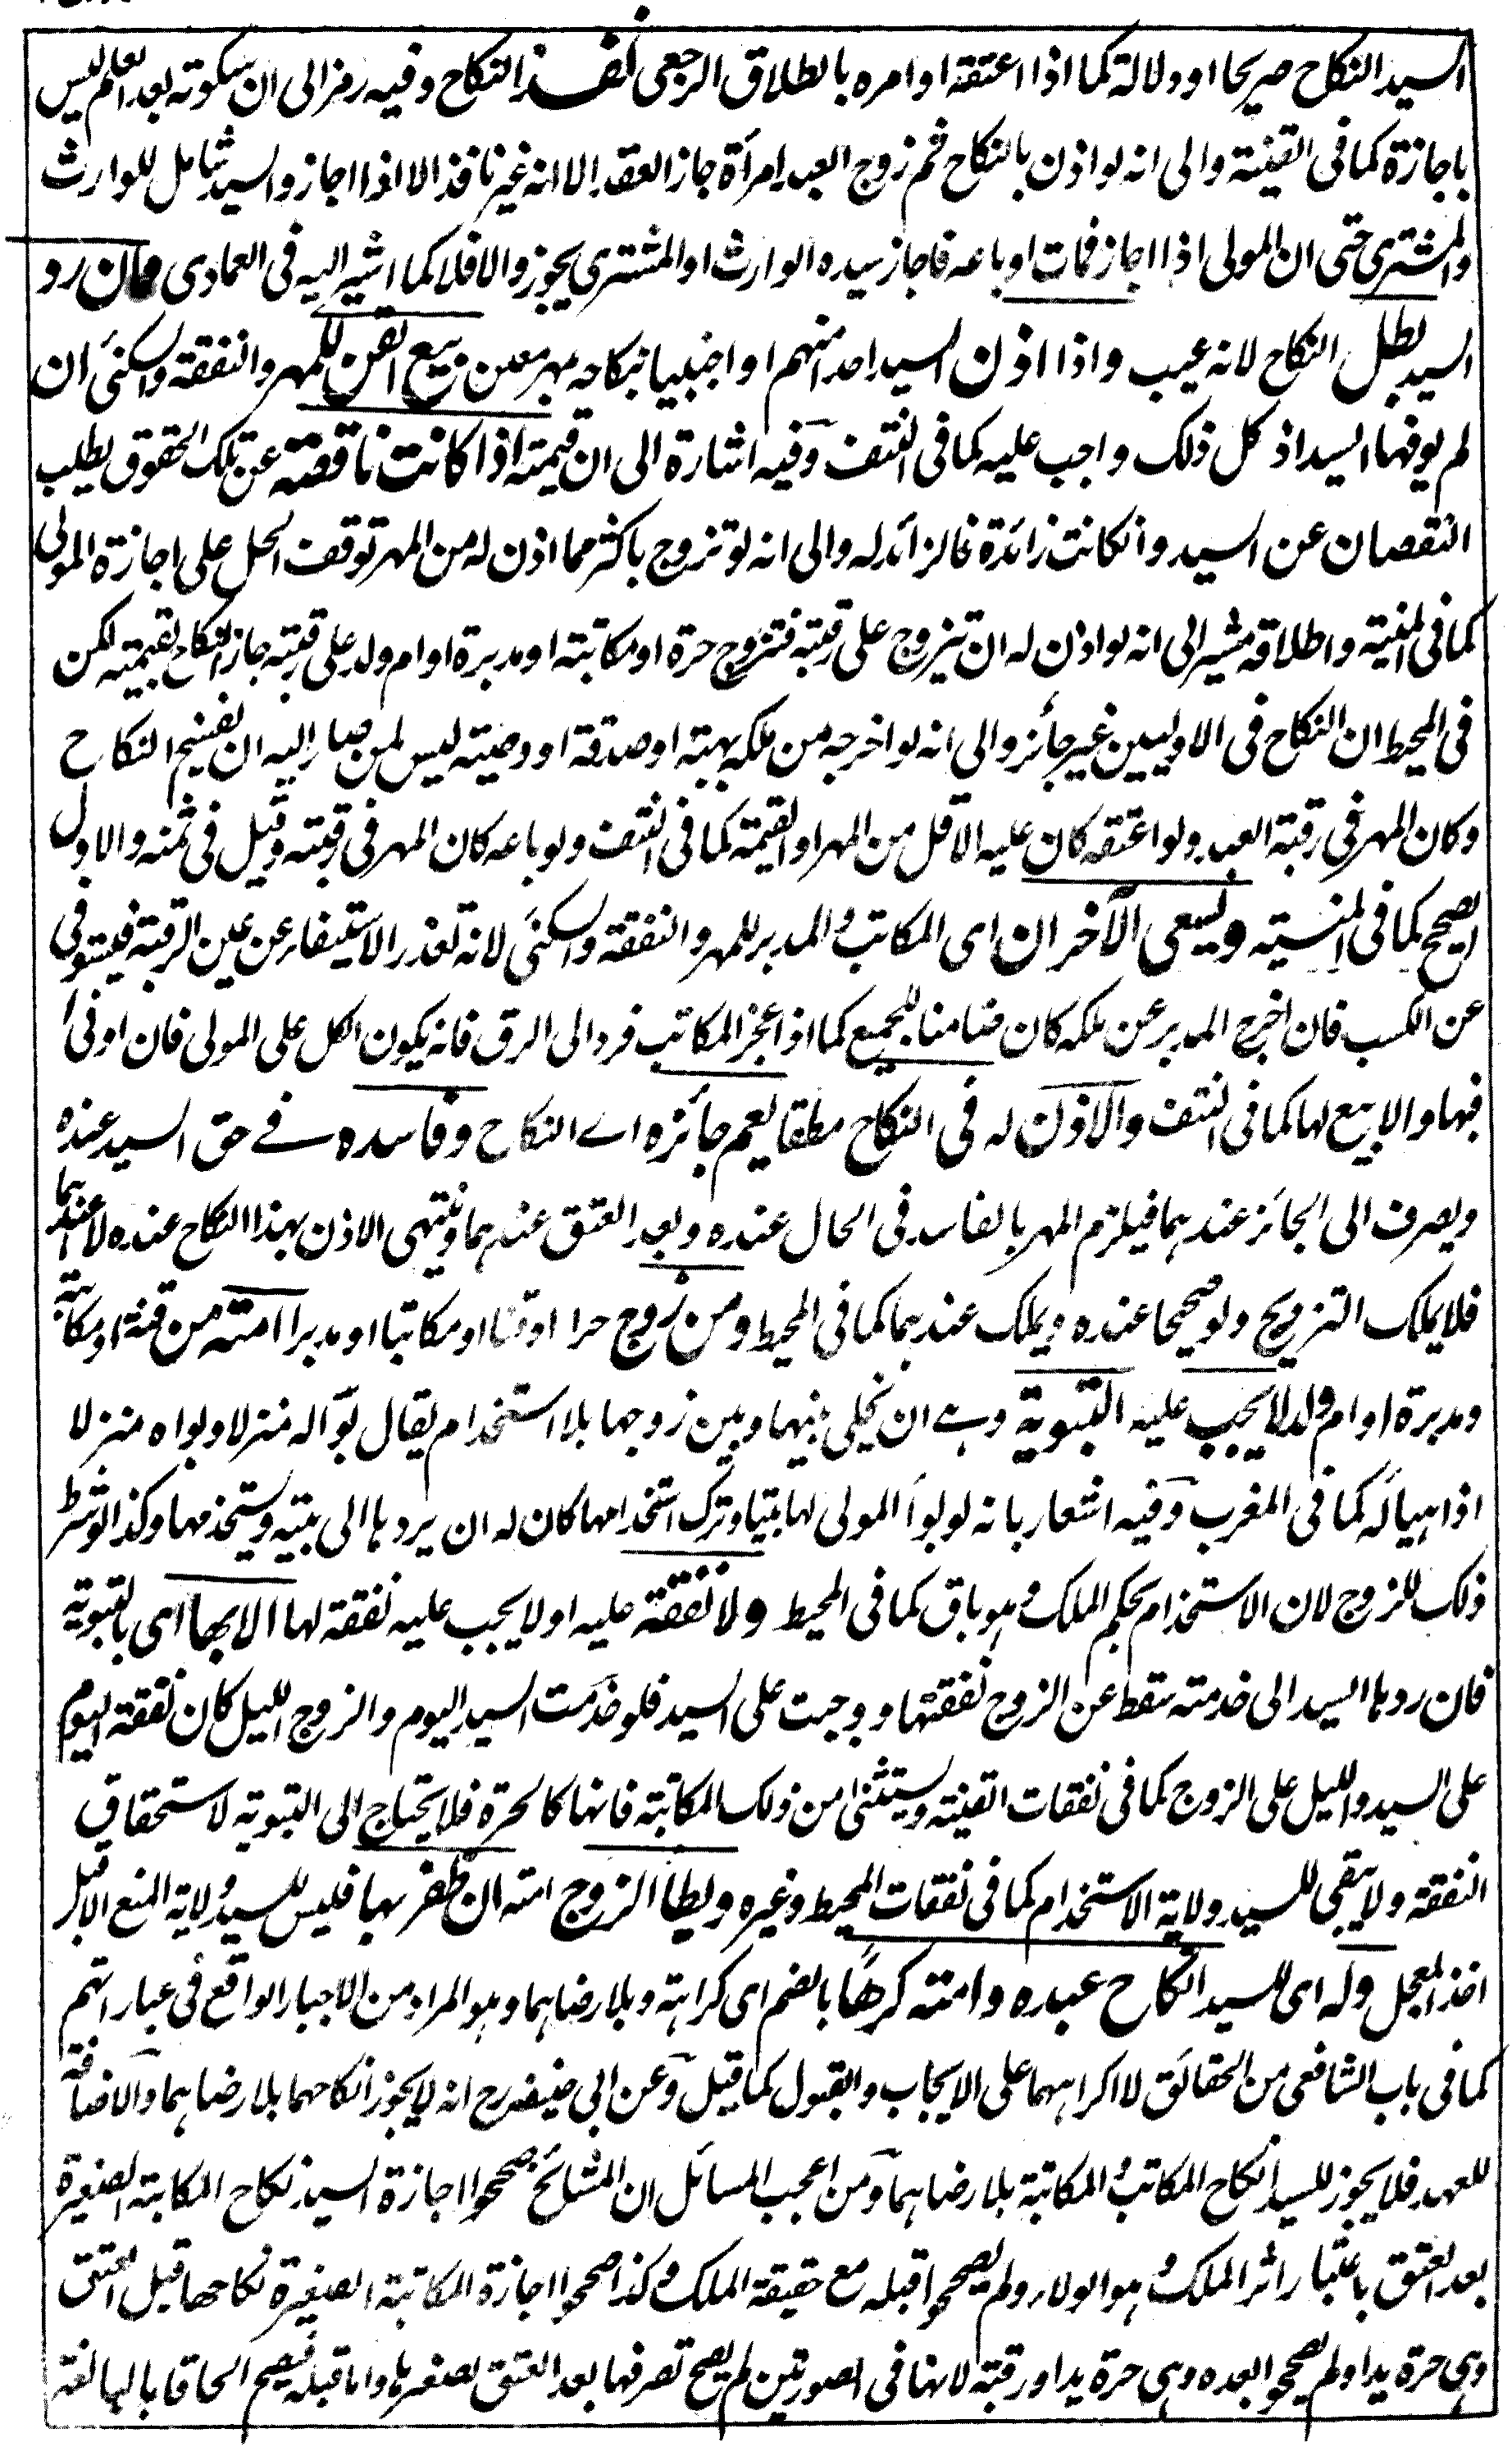 السيد النكاح صريحا او دلالة كما اذا اعتقه او امره بالطلاق الرجعي نفذ النكاح وفيه رمز الى ان سكوته بعد العلم ليس
باجازة كما فى القنية والى انه لو اذن بالنكاح ثم زوج العبد امرأة جاز العقد الا انه غير نافذ الا اذا اجاز والسيد شامل للوارث
والمشترى حتى ان المولى اذا اجاز فمات او باعه فاجاز سيده الوارث او المشترى يجوز والا فلا كما اشير اليه فى العمادى وان رد
السيد بطل النكاح لانه عيب واذا اذن السيد احدا منهم او اجنبيا بنكاحه بمهر معين بيع القن للمهر والنفقة والسكنى ان
لم يوفها السيد اذ كل ذلك واجب عليه كما فى النتف وفيه اشارة الى ان قيمته اذا كانت ناقصة عن تلك الحقوق يطلب
النقصان عن السيد وانكانت زائدة فالزائد له والى انه لو تزوج باكثر مما اذن له من المهر توقف الحل على اجازة المولى
كما فى المنية واطلاقه مشير الى انه لو اذن له ان يتزوج على رقبته فتزوج حرة او مكاتبة او مدبرة او ام ولد على رقبته جاز النكاح بقيمته لكن
فى المحيط ان النكاح فى الاوليين غير جائز والى انه لو اخرجه من ملكه بهبة او صدقة او وصية ليس لمن صار اليه ان يفسخ النكاح
وكان المهر فى رقبة العبد ولو اعتقه كان عليه الاقل من المهر او القيمة كما فى النتف ولو باعه كان المهر فى رقبته وقيل فى ثمنه والاول
الصحيح كما فى المنية ويسعى الآخران اى المكاتب والمدبر للمهر والنفقة والسكنى لانه تعذر الاستيفاء عن عين الرقبة فيستوفى
عن الكسب فان اخرج المدبر عن ملكه كان ضامنا للجميع كما اذا عجز المكاتب فرد الى الرق فانه يكون الكل على المولى فان اوفى
فبها والا بيع لها كما فى النتف والاذن له فى النكاح مطلقا يعم جائزه اے النكاح وفاسده فے حق السيد عنده
ويصرف الى الجائز عندهما فيلزم المهر بالفاسد فى الحال عنده وبعد العتق عندهما وينتهى الاذن بهذا النكاح عنده لا عندهما
فلا يملك التزويج ولو صحيحا عنده ويملك عندهما كما فى المحيط ومن زوج حرا او قنا او مكاتبا او مدبرا امته من قنة او مكاتبة
ومدبرة او ام ولد لا يجب عليه التبوية وهے ان يخلى بينها وبين زوجها بلا استخدام يقال بوأ له منزلا وبواه منزلا
اذا هيأ له كما فى المغرب وفيه اشعار بانه لو بوأ المولى لها بيتا وترك استخدامها كان له ان يردها الى بيته ويستخدمها وكذا لو شرط
ذلك للزوج لان الاستخدام بحكم الملك وهو باق كما فى المحيط ولا نفقة عليه او لا يجب عليه نفقة لها الا بها اى بالتبوية
فان ردها السيد الى خدمته سقط عن الزوج نفقتها ووجبت على السيد فلو خدمت السيد اليوم والزوج الليل كان نفقة اليوم
على السيد والليل على الزوج كما فى نفقات القنية ويستثنى من ذلك المكاتبة فانها كالحرة فلا يحتاج الى التبوية لاستحقاق
النفقة ولا يبقى للسيد ولاية الاستخدام كما فى نفقات المحيط وغيره ويطأ الزوج امته ان ظفر بها فليس للسيد ولاية المنع الا قبل
اخذ المعجل وله اى للسيد انكاح عبده وامته كرها بالضم اى كراهة وبلا رضاهما وهو المراد من الاجبار الواقع فى عباراتهم
كما فى باب الشافعى من الحقائق لا اكراههما على الايجاب والقبول كما قيل وعن ابى حنيفة رح انه لا يجوز انكاحهما بلا رضاهما والاضافة
للعهد فلا يجوز للسيد انكاح المكاتب والمكاتبة بلا رضاهما ومن اعجب المسائل ان المشائخ صححوا اجازة السيد نكاح المكاتبة الصغيرة
بعد العتق باعتبار اثر الملك وهو الولاء ولم يصححوا قبله مع حقيقة الملك وكذا صححوا اجازة المكاتبة الصغيرة نكاحها قبل العتق
وهى حرة يدا ولم يصححوا بعده وهى حرة يدا ورقبة لانها فى الصورتين لم يصح تصرفها بعد العتق لصغرها واما قبله فيصح الحاقا بالبالغة